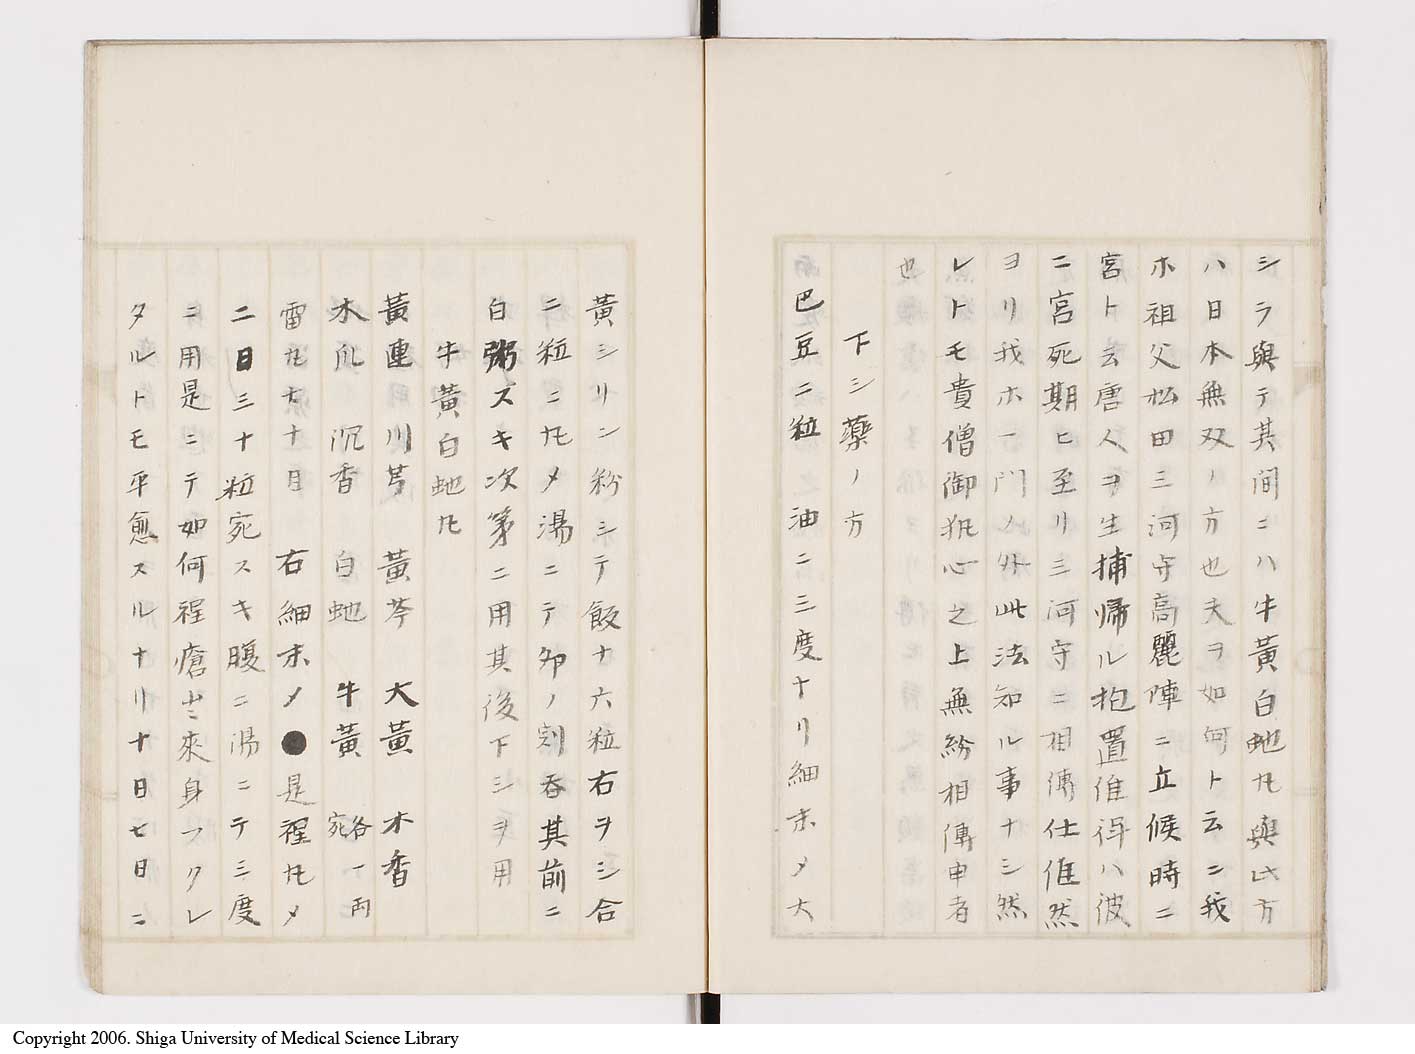 シラ與テ其間ニハ牛黄白虵丸與此方
ハ日本無双ノ方也夫ヲ如何ト云ニ我
ホ祖父松田三河守高麗陣ニ立候時ニ
宮ト云唐人ヲ生捕帰ル抱置隹得ハ彼
ニ宮死期ヒ至リ三河守ニ相傳仕隹然
ヨリ我ホ一門ノ外此法知ル事ナシ然
レトモ貴僧御執心之上無紛相傳申者
也
下シ藥ノ方
巴豆二粒 油ニ三度トリ細末メ大
黄シリン粉シテ飯ナ六粒右ヲシ合
ニ粒ニ丸メ湯ニテ卯ノ刻呑其前ニ
白粥スキ次第ニ用其後下シヲ用
牛黄白虵丸
黄連 川芎 黄芩 大黄 木香
氷 沉香 白虵 牛黄 各一兩宛
雷丸 十目 右細末メ●是裎丸メ
二日三十粒宛スキ腹ニ湯ニテ三度
ニ用是ニテ如何裎瘡出來身フクレ
タルトモ平愈スルナリ十日七日ニ
Copyright 2006. Shiga University of Medical Science Library